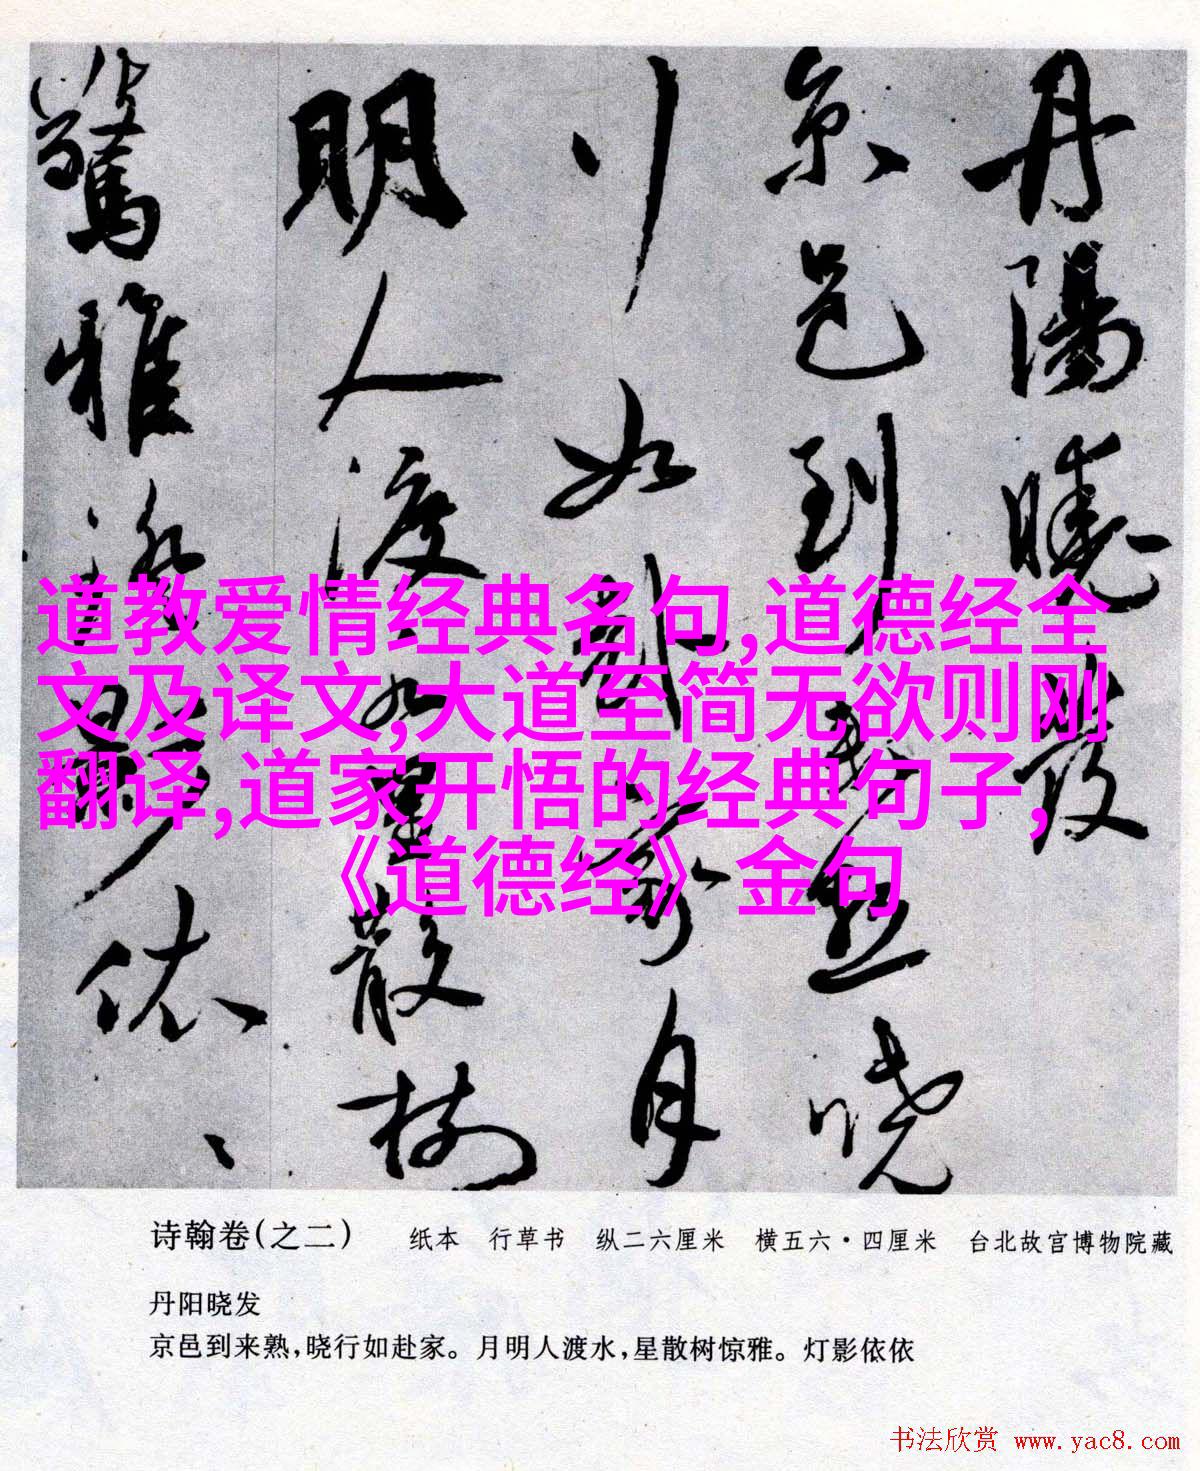 丹陽曉發
京邑到来熟曉
行如赴家月
明人渡水星散樹
驚雅燈影依依
道教爱情经典名句,道德经全
文及译文,大道至简无欲则刚
翻译,道家开悟的经典句子,
《道德经》金句
诗翰卷(之二) 纸本 行草书 纵二六厘米 横五六·四厘米 台北故宫博物院藏
丹阳晓发
京邑到来熟,晓行如赴家。月明人渡水,星散树惊雅。灯影依依
书法欣赏 www.yac8.com